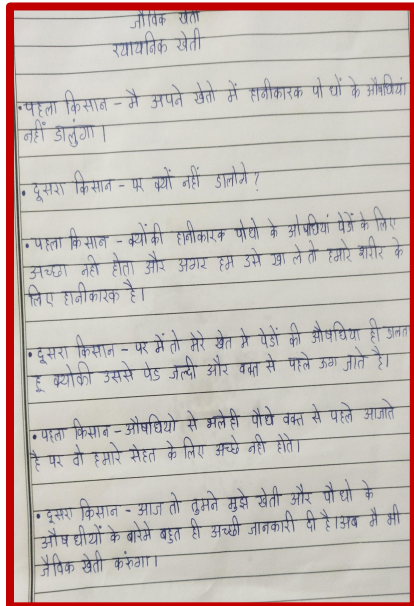 जैविक खेती
रयायनिक खेती
• पहला किसान - मै अपने खेतो में हानीकारक पोधों के औषधियां
नहीं डालुंगा।
• दूसरा किसान - पर क्यों नहीं डालोगे?
• पहला किसान - क्योंकी हानीकारक पोधो के ओषधियां पेडों के लिए
अच्छा नही होता और अगर हम उसे खा ले तो हमारे शरीर के
लिए हानीकारक है।
• दूसरा किसान - पर में तो मेरे खेत मे पेडों की औषधिया ही डालता
हू क्योकी उससे पेड जल्दी और वक्त से पहले ऊग जाते है।
• पहला किसान - औषधियो से भलेही पौधे वक्त से पहले आजाते
है पर वो हमारे सेहत के लिए अच्छे नही होते।
• दूसरा किसान - आज तो तुमने मुझे खेती और पौधो के
औषधीयों के बारेमे बहुत ही अच्छी जानकारी दी है। अब मै भी
जैविक खेती करुंगा।